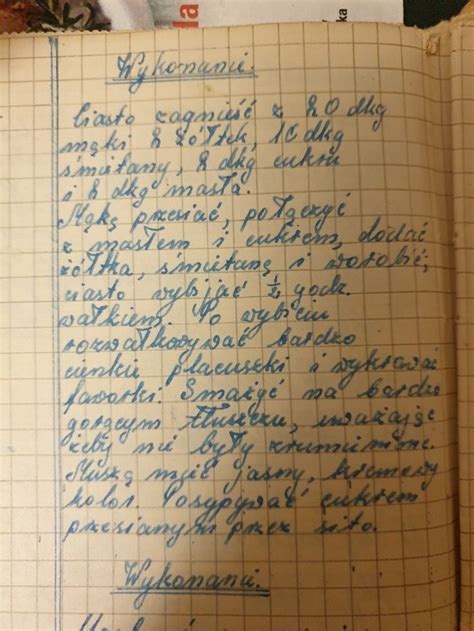 da
ka
Wykonanie.
Ciasto zagnieść z 20 dkg
mąki 2 żółtek, 10 dkg
śmietany, 2 dkg cukru
i 2 dkg masła.
Mąkę przesiać, połączyć
z masłem i cukrem, dodać
żółtka, śmietanę, i wyrobić,
ciasto wybijać ½ godz.
wałkiem. Po wybiciu
rozwałkowywać bardzo
cienkie placuszki i wykrawać
faworki. Smażyć na bardzo
gorącym tłuszczu, uważając
żeby nie były zrumienione.
Muszą mieć jasny, kremowy
kolor. Posypywać cukrem
przesianym przez sito.
Wykonanie.